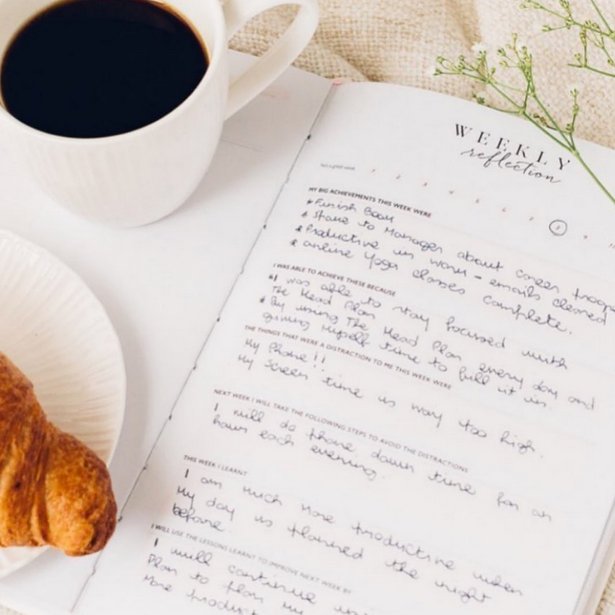 WEEKLY
reflection
MY BIG ACHIEVEMENTS THIS WEEK WERE
* Finish Book
* Productive in work - emails cleared
* online Yoga classes complete.
I WAS ABLE TO ACHIEVE THESE BECAUSE
* I was able to stay focused with
The Head Plan every day and
* By using The Head Plan and
giving Myself time to fill it in.
THE THINGS THAT WERE A DISTRACTION TO ME THIS WEEK WERE
My Phone!!
My Screen time is way too high.
NEXT WEEK I WILL TAKE THE FOLLOWING STEPS TO AVOID THE DISTRACTIONS
I will do phone down time for an
hour each evening.
THIS WEEK I LEARNT
I am much more productive when
My day is planned the night
before.
I WILL USE THE LESSONS LEARNT TO IMPROVE NEXT WEEK BY
I will continue
Plan to plan my
More